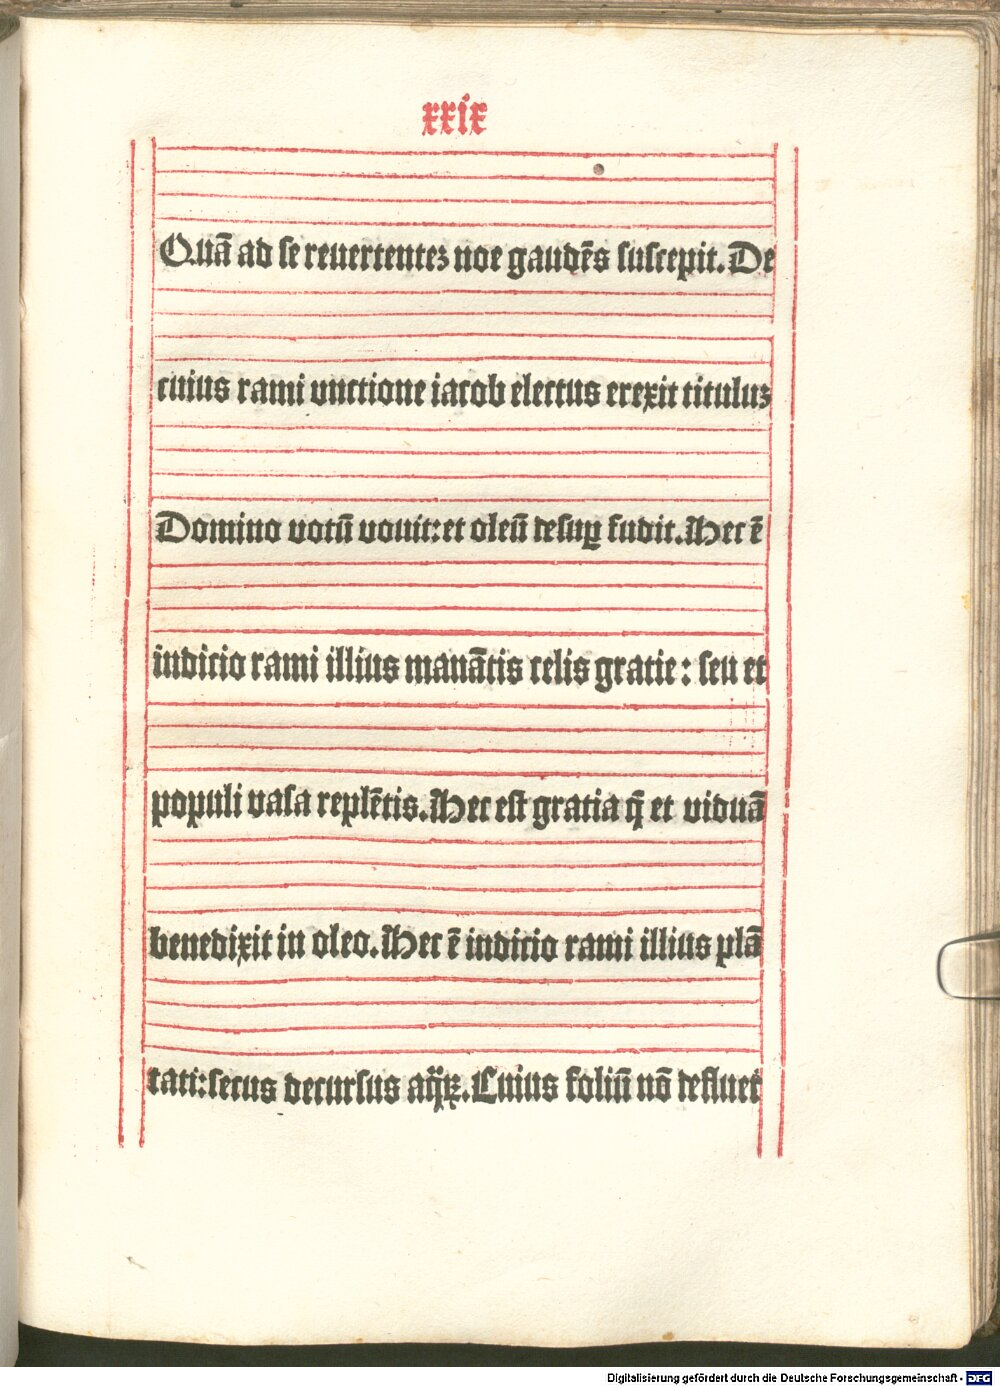 xxix
Quā ad se reuertentez noe gaudēs suscepit. De
cuius rami vnctione iacob electus erexit tituluz
Domino votū vouit: et oleū desuꝑ fudit. Hec ē
indicio rami illius manātis celis gratie: seu et
populi vasa replētis. Hec est gratia q̄ et viduā
benedixit in oleo. Hec ē indicio rami illius plā
tati: secus decursus aq̄ꝝ. Cuius foliū nō defluet
Digitalisierung gefördert durch die Deutsche Forschungsgemeinschaft - DFG